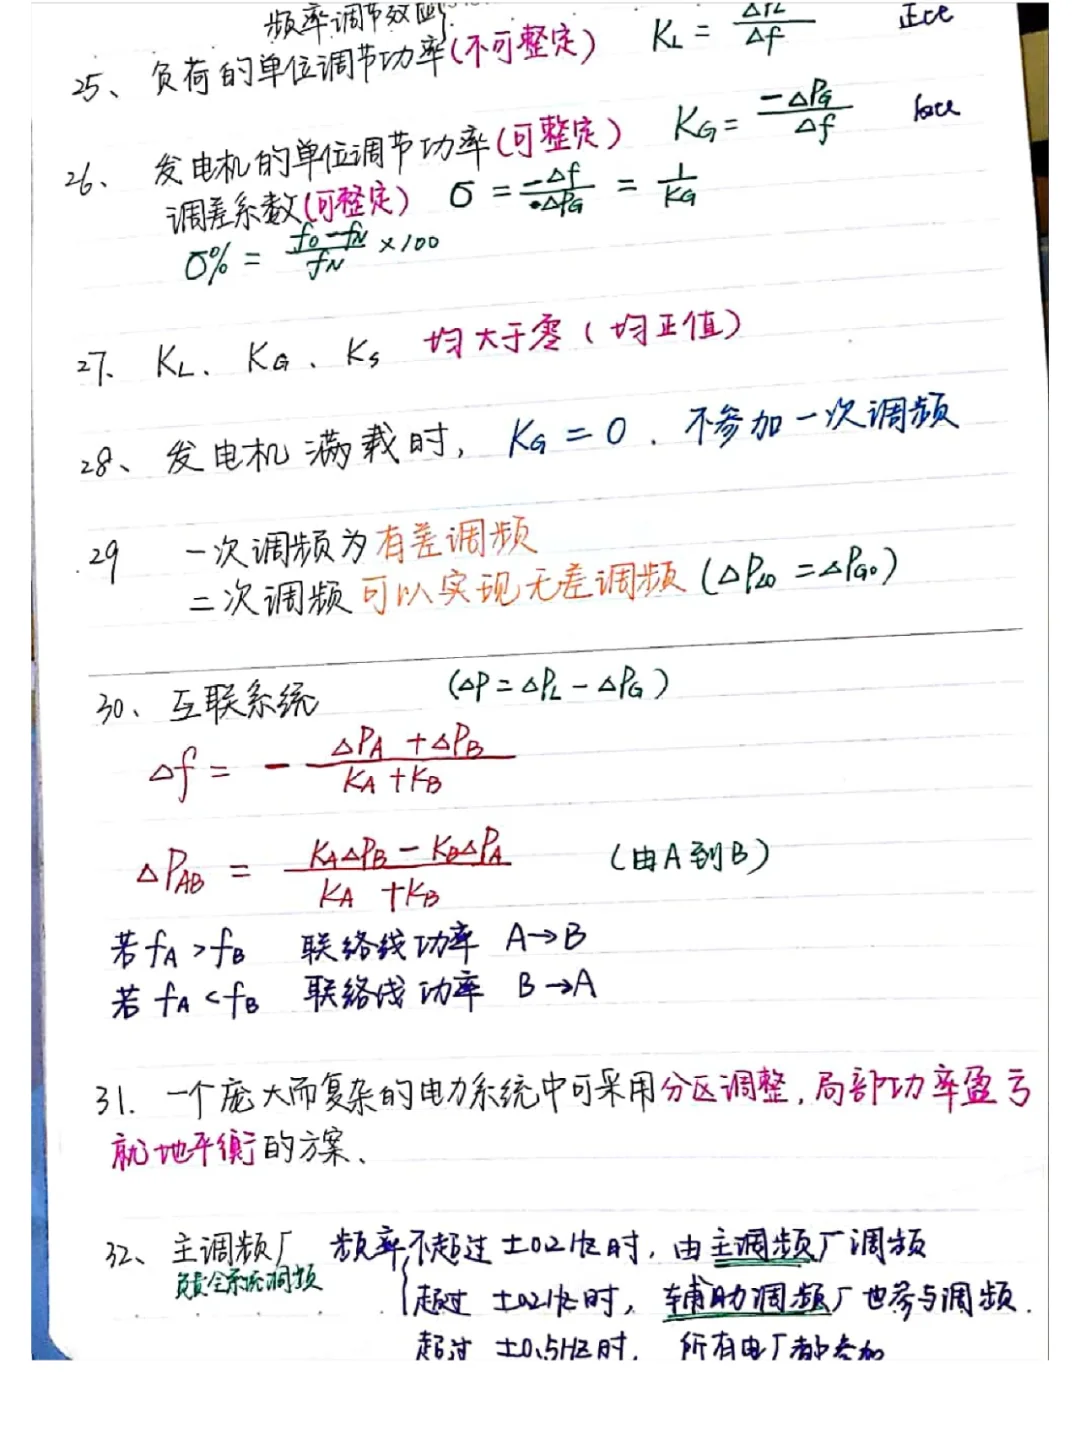 频率调节效应
25、负荷的单位调节功率(不可整定) KL = ΔPL/Δf
26、发电机的单位调节功率(可整定) KG = -ΔPG/Δf
调差系数(可整定) σ = -Δf/ΔPG = 1/KG
σ% = (f0-fN)/fN ×100
27、KL、KG、KS 均大于零(均正值)
28、发电机满载时, KG = 0. 不参加一次调频
29 一次调频为有差调频
二次调频可以实现无差调频(ΔPL0 = ΔPG0)
30、互联系统 (ΔP = ΔPL - ΔPG)
Δf = - (ΔPA + ΔPB)/(KA + KB)
ΔPAB = (KAΔPB - KBΔPA)/(KA + KB) (由A到B)
若 fA > fB 联络线功率 A→B
若 fA < fB 联络线功率 B→A
31. 一个庞大而复杂的电力系统中可采用分区调整,局部功率盈亏
就地平衡的方案、
32、主调频厂 频率不超过 ±02Hz时, 由主调频厂调频
负责全系统调频 超过 ±02Hz时, 辅助调频厂也参与调频.
超过 ±0.5HZ时. 所有电厂都参加